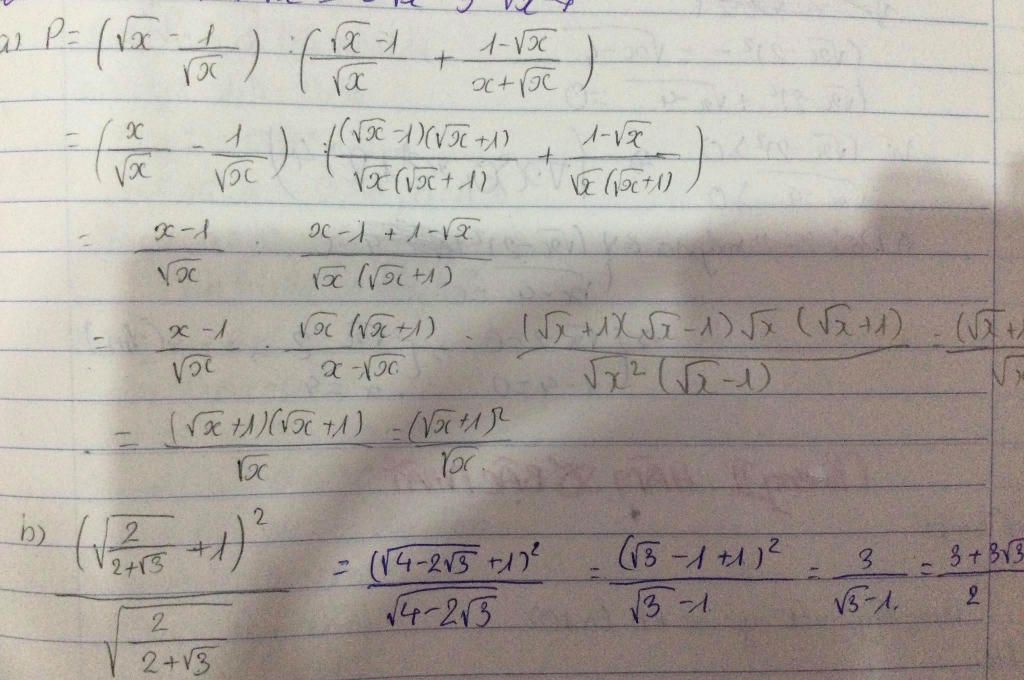 a) P = (√x - 1/√x) : ((√x - 1)/√x + (1 - √x)/(x + √x))
= (x/√x - 1/√x) : ((√x - 1)(√x + 1)/(√x(√x + 1)) + (1 - √x)/(√x(√x + 1)))
= (x - 1)/√x : (x - 1 + 1 - √x)/(√x(√x + 1))
= (x - 1)/√x . √x(√x + 1)/(x - √x) = (√x + 1)(√x - 1)√x(√x + 1)/(√x²(√x - 1)) =
= (√x + 1)(√x + 1)/√x = (√x + 1)²/√x
b) (√(2/(2 + √3)) + 1)²/√(2/(2 + √3)) = (√(4 - 2√3) + 1)²/√(4 - 2√3) = (√3 - 1 + 1)²/(√3 - 1) = 3/(√3 - 1) = (3 + 3√3)/2